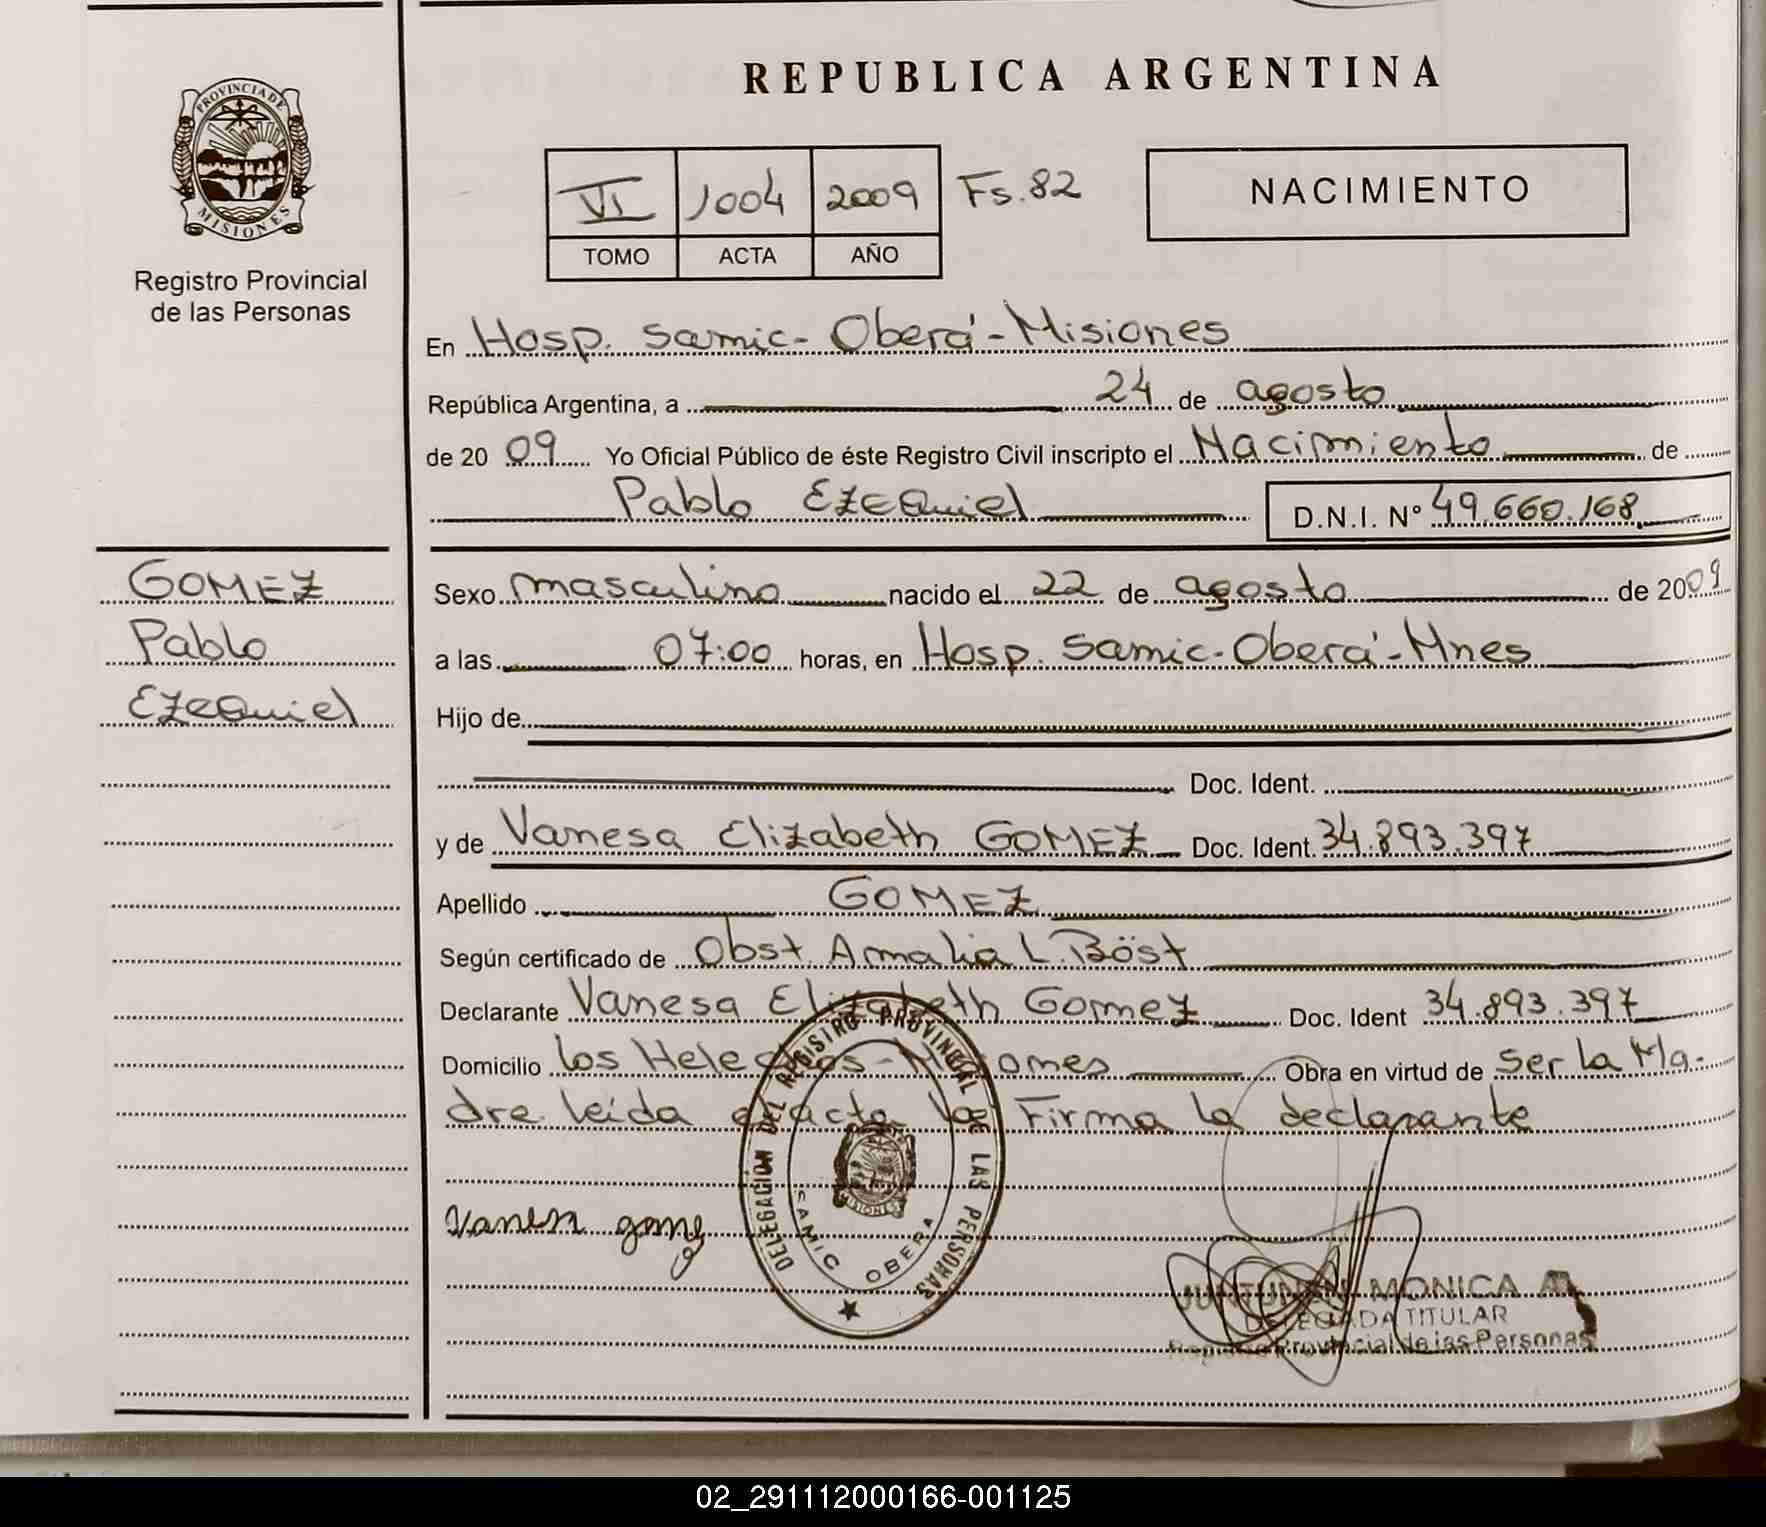 PROVINCIA DE
MISIONES
Registro Provincial
de las Personas
REPUBLICA ARGENTINA
VI 1004 2009 Fs. 82
TOMO ACTA AÑO
NACIMIENTO
En Hosp. Samic - Oberá - Misiones
República Argentina, a 24 de agosto
de 2009 Yo Oficial Público de éste Registro Civil inscripto el Nacimiento de
Pablo Ezequiel D.N.I. Nº 49.660.168
GOMEZ
Pablo
Ezequiel
Sexo masculino nacido el 22 de agosto de 2009
a las 07:00 horas, en Hosp. Samic - Oberá - Mnes
Hijo de
Doc. Ident.
y de Vanesa Elizabeth GOMEZ Doc. Ident. 34.893.397
Apellido GOMEZ
Según certificado de Obst. Amalia L. Böst
Declarante Vanesa Elizabeth Gomez Doc. Ident 34.893.397
Domicilio los Helechos - Misiones Obra en virtud de ser la Ma-
dre. leida el acta la Firma la declarante
Vanesa gomez
DELEGACION DEL REGISTRO PROVINCIAL DE LAS PERSONAS
SAMIC OBERA
MONICA A.
DELEGADA TITULAR
Registro Provincial de las Personas
02_291112000166-001125